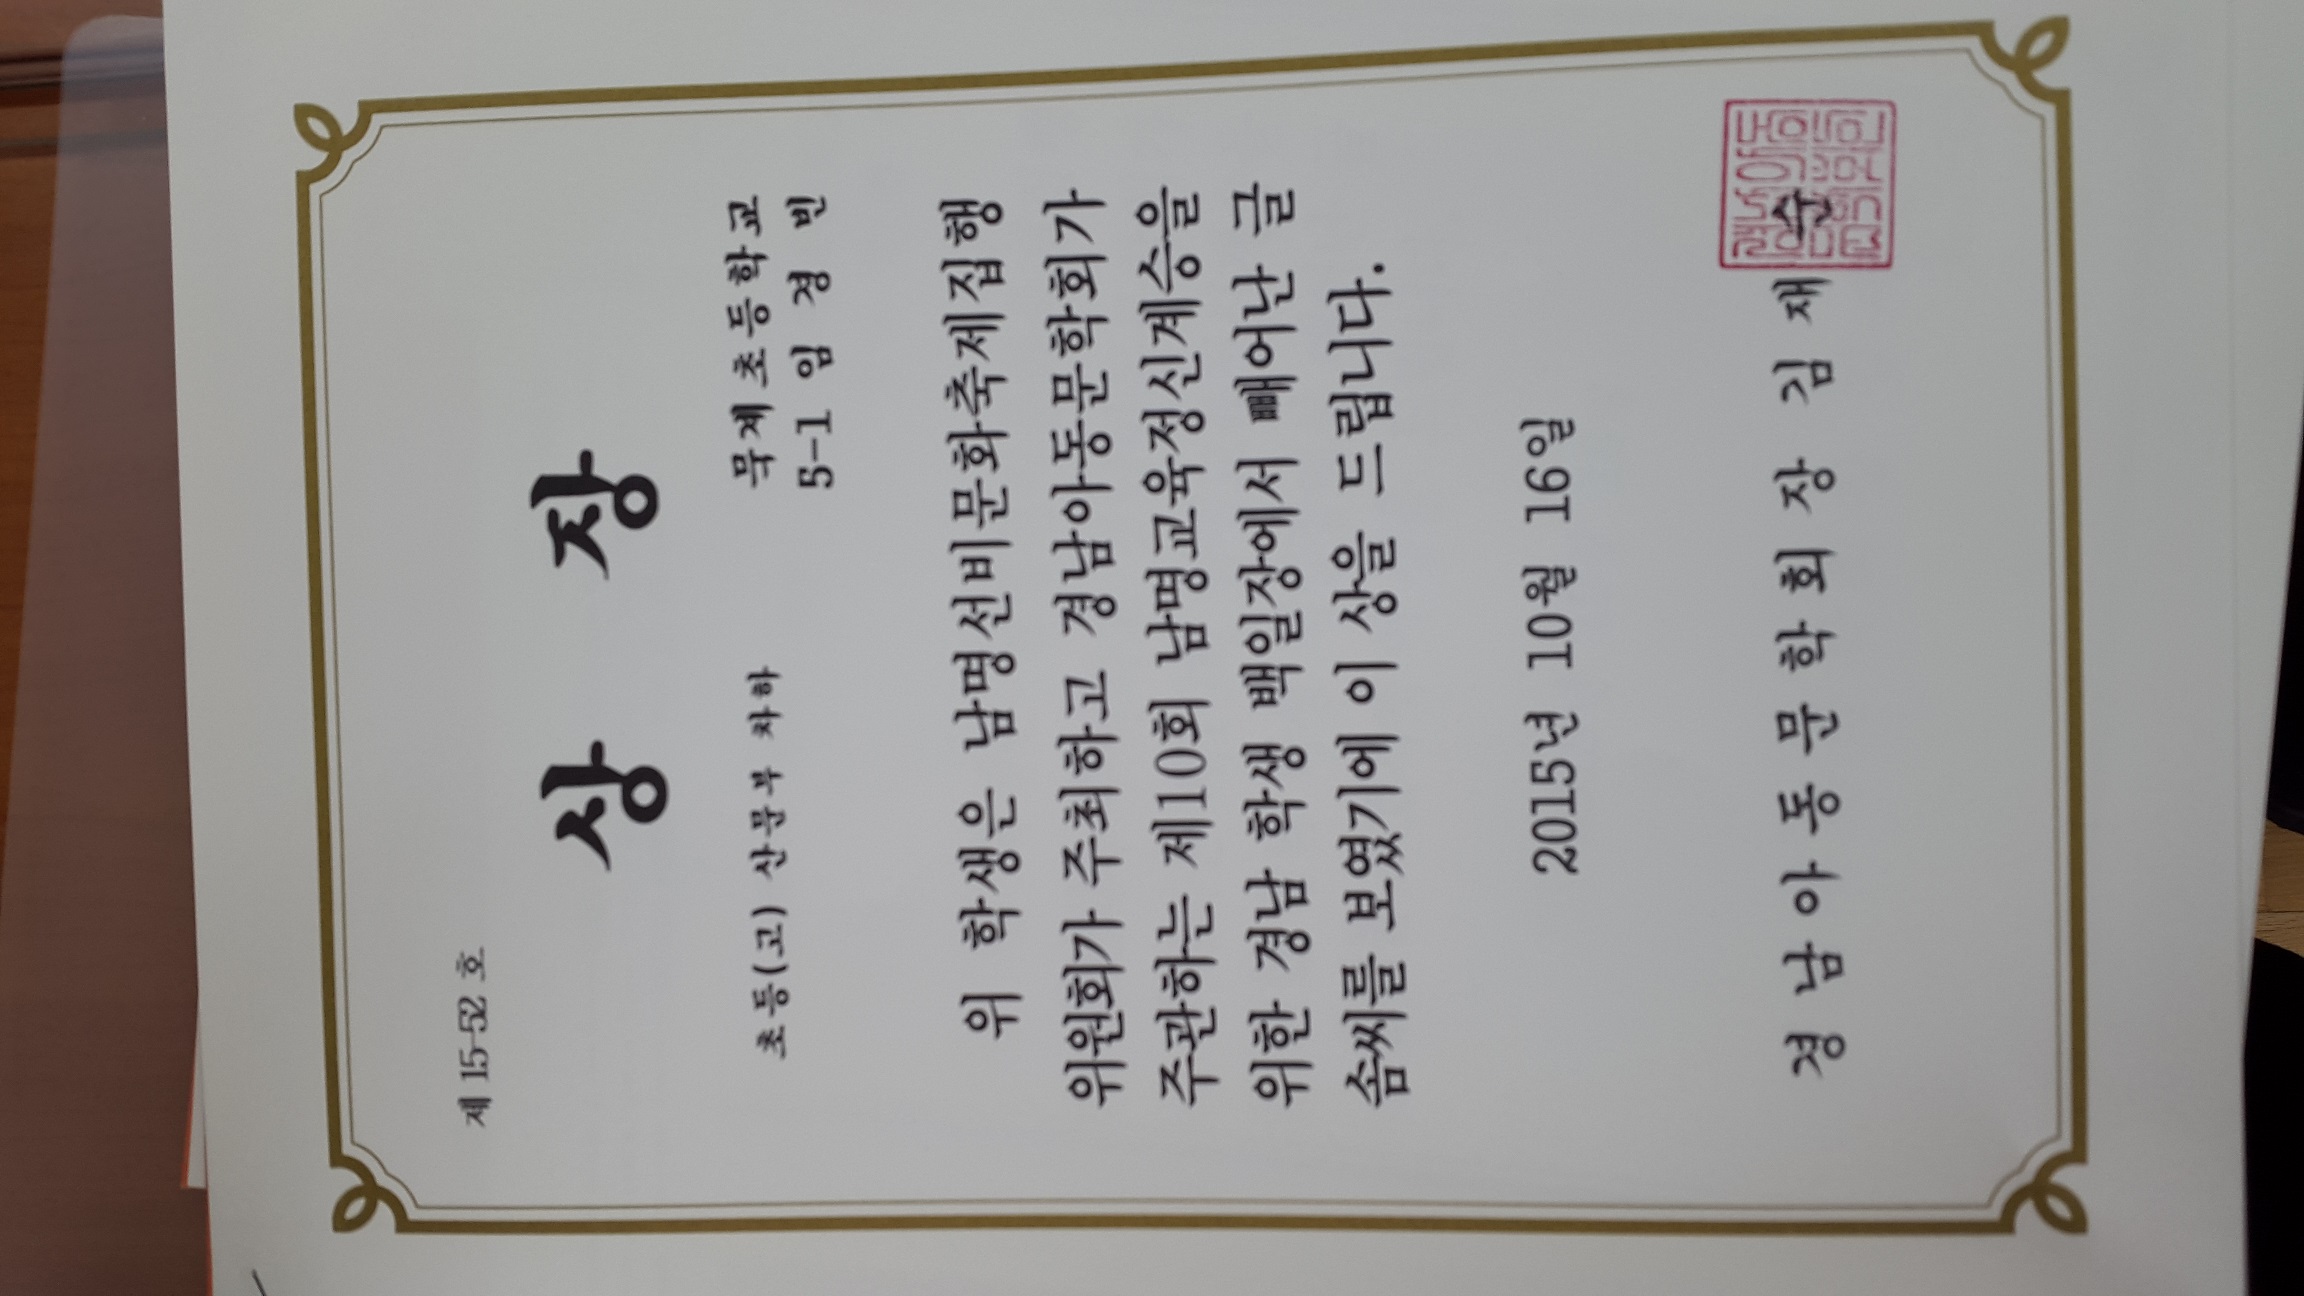 제 15-52 호
상 장
초등(고) 산문부 차하
묵계초등학교
5-1 임 경 빈
위 학생은 남명선비문화축제집행
위원회가 주최하고 경남아동문학회가
주관하는 제10회 남명교육정신계승을
위한 경남 학생 백일장에서 빼어난 글
솜씨를 보였기에 이 상을 드립니다.
2015년 10월 16일
경남아동문학회장 김재순